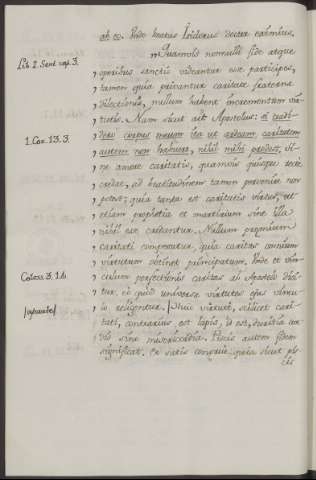 ab eo. Unde beatus Isidorus dicere cernimus.
Lib. 2. Sent cap. 3.
" Quamvis nonnulli fide atque
" operibus sanctis videantur esse participes,
" tamen quia privantur caritate fraternæ
" dilectionis, nullum habent incrementum vir-
" tutis. Nam sicut ait Apostolus: si tradi-
1. Cor. 13. 3
" dero corpus meum ita ut ardeam, caritatem
" autem non habuero, nihil mihi prodest; si-
" ne amore caritatis, quamvis quisque recte
" credat, ad beatitudinem tamen pervenire non
" potest; quia tanta est caritatis virtus, ut
" etiam prophetia et martirium sine illa
" nihil esse credantur. Nullum præmium
" caritati compensatur, quia caritas omnium
" virtutum obtinet principatum. Unde et vin-
Coloss. 3. 14
" culum perfectionis caritas ab Apostolo dici-
" tur, eo quod universæ virtutes ejus vincu-
" lo religentur. Huic virtuti, scilicet cari-
tati, contrarius est lapis, id est, duritia cor-
dis sine misericordia. Piscis autem fidem
significat. Et satis congrue, quia sicut pis-
cis